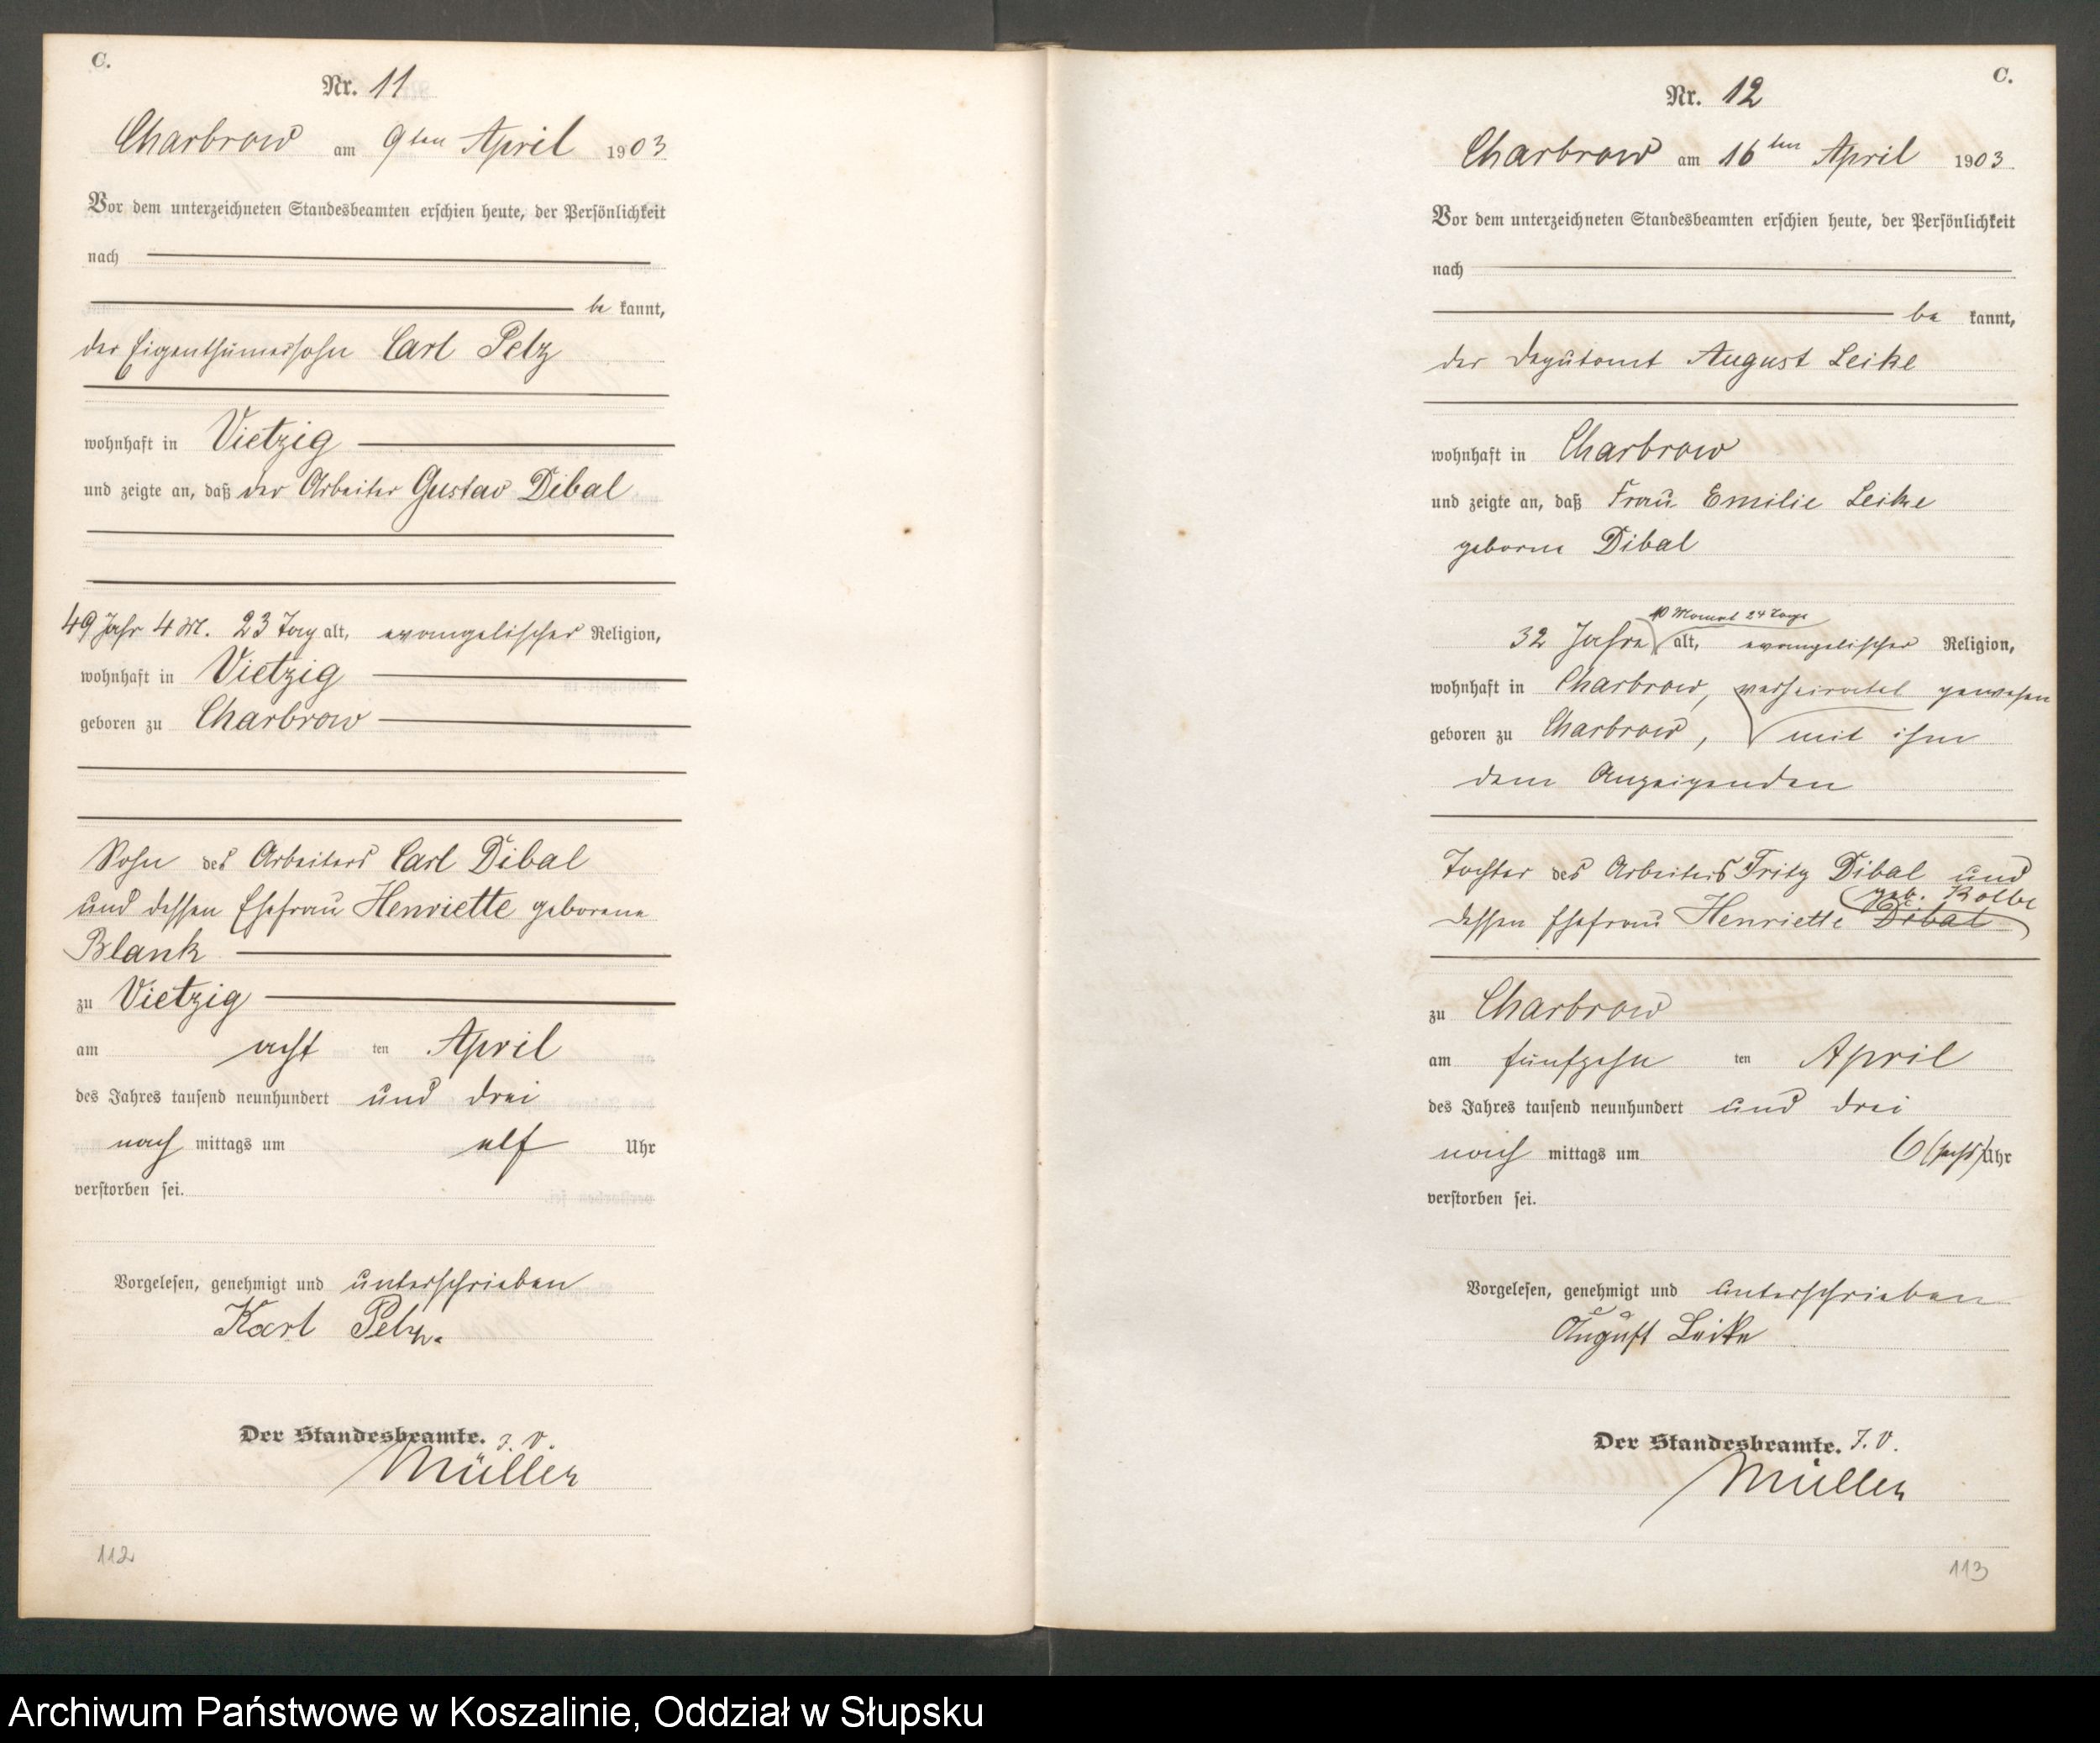 C.
Nr. 11
Charbrow am 9ten April 1903
Vor dem unterzeichneten Standesbeamten erschien heute, der Persönlichkeit
nach
be kannt,
der Eigenthümersohn Carl Pelz
wohnhaft in Vietzig
und zeigte an, daß der Arbeiter Gustav Dibal
49 Jahr 4 M. 23 Tag alt, evangelischer Religion,
wohnhaft in Vietzig
geboren zu Charbrow
Sohn des Arbeiters Carl Dibal
und dessen Ehefrau Henriette geborene
Blank
zu Vietzig
am acht ten April
des Jahres tausend neunhundert und drei
nach mittags um elf Uhr
verstorben sei.
Vorgelesen, genehmigt und unterschrieben
Karl Pelz.
Der Standesbeamte. J. V.
Müller
112
C.
Nr. 12
Charbrow am 16ten April 1903
Vor dem unterzeichneten Standesbeamten erschien heute, der Persönlichkeit
nach
be kannt,
der Deputant August Leike
wohnhaft in Charbrow
und zeigte an, daß Frau Emilie Leike
geborne Dibal
10 Monat 24 Tage
32 Jahre alt, evangelischer Religion,
wohnhaft in Charbrow, verheirathet gewesen
geboren zu Charbrow, mit ihm
dem Anzeigenden
Tochter des Arbeiters Fritz Dibal und
geb. Kolbe
dessen Ehefrau Henriette Dibal
zu Charbrow
am fünfzehn ten April
des Jahres tausend neunhundert und drei
nach mittags um 6 (sechs) Uhr
verstorben sei.
Vorgelesen, genehmigt und unterschrieben
August Leike
Der Standesbeamte. J. V.
Müller
113
Archiwum Państwowe w Koszalinie, Oddział w Słupsku